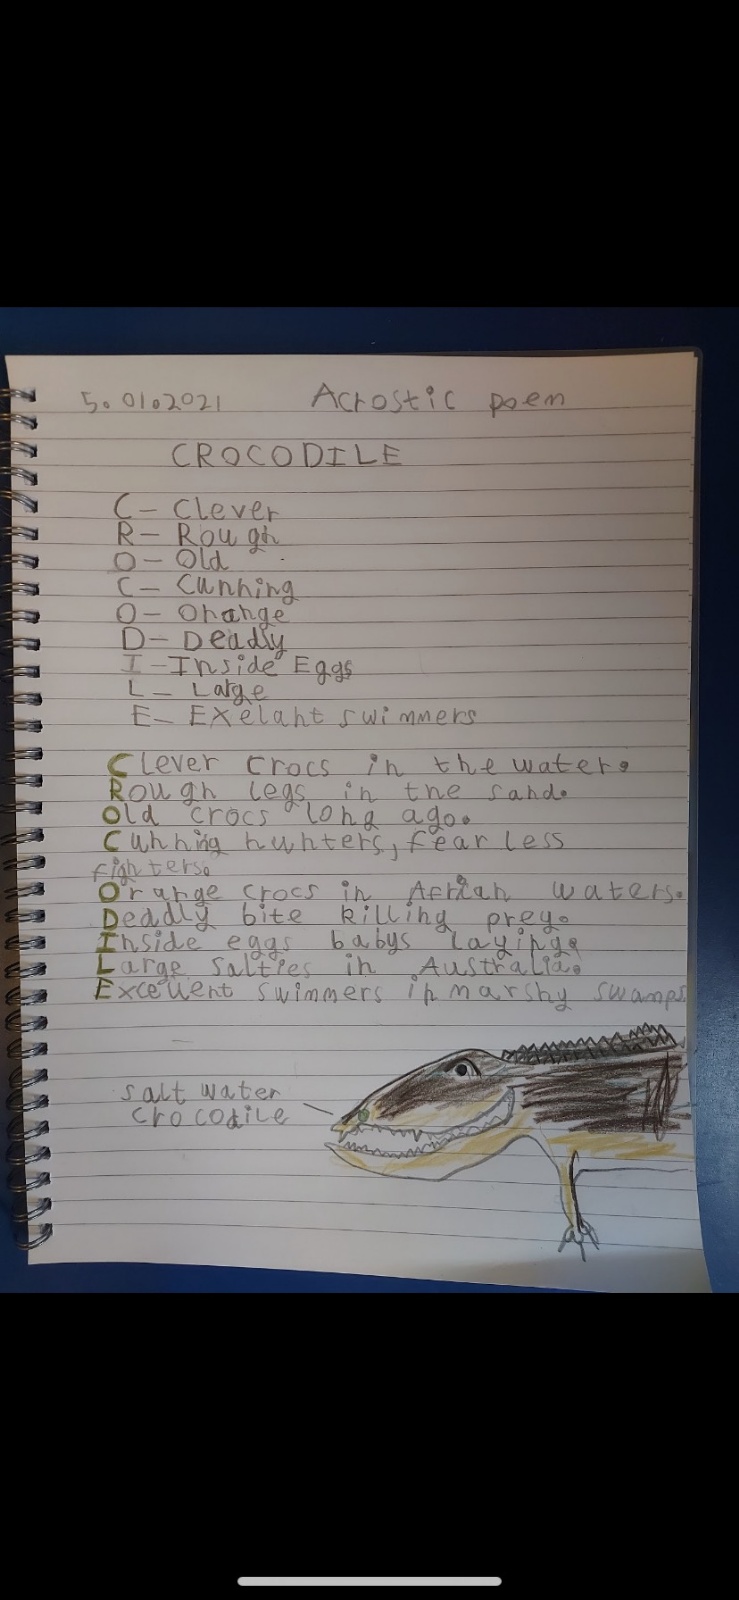 5.01.2021 Acrostic poem
CROCODILE
C - Clever
R - Rough
O - Old
C - Cunning
O - Orange
D - Deadly
I - Inside Eggs
L - Large
E - Exelant swimmers
Clever crocs in the water.
Rough legs in the sand.
Old crocs long ago.
Cunning hunters, fear less
fighters.
Orange crocs in African waters.
Deadly bite killing prey.
Inside eggs babys laying.
Large salties in Australia.
Excellent swimmers in marshy swamps
salt water
crocodile